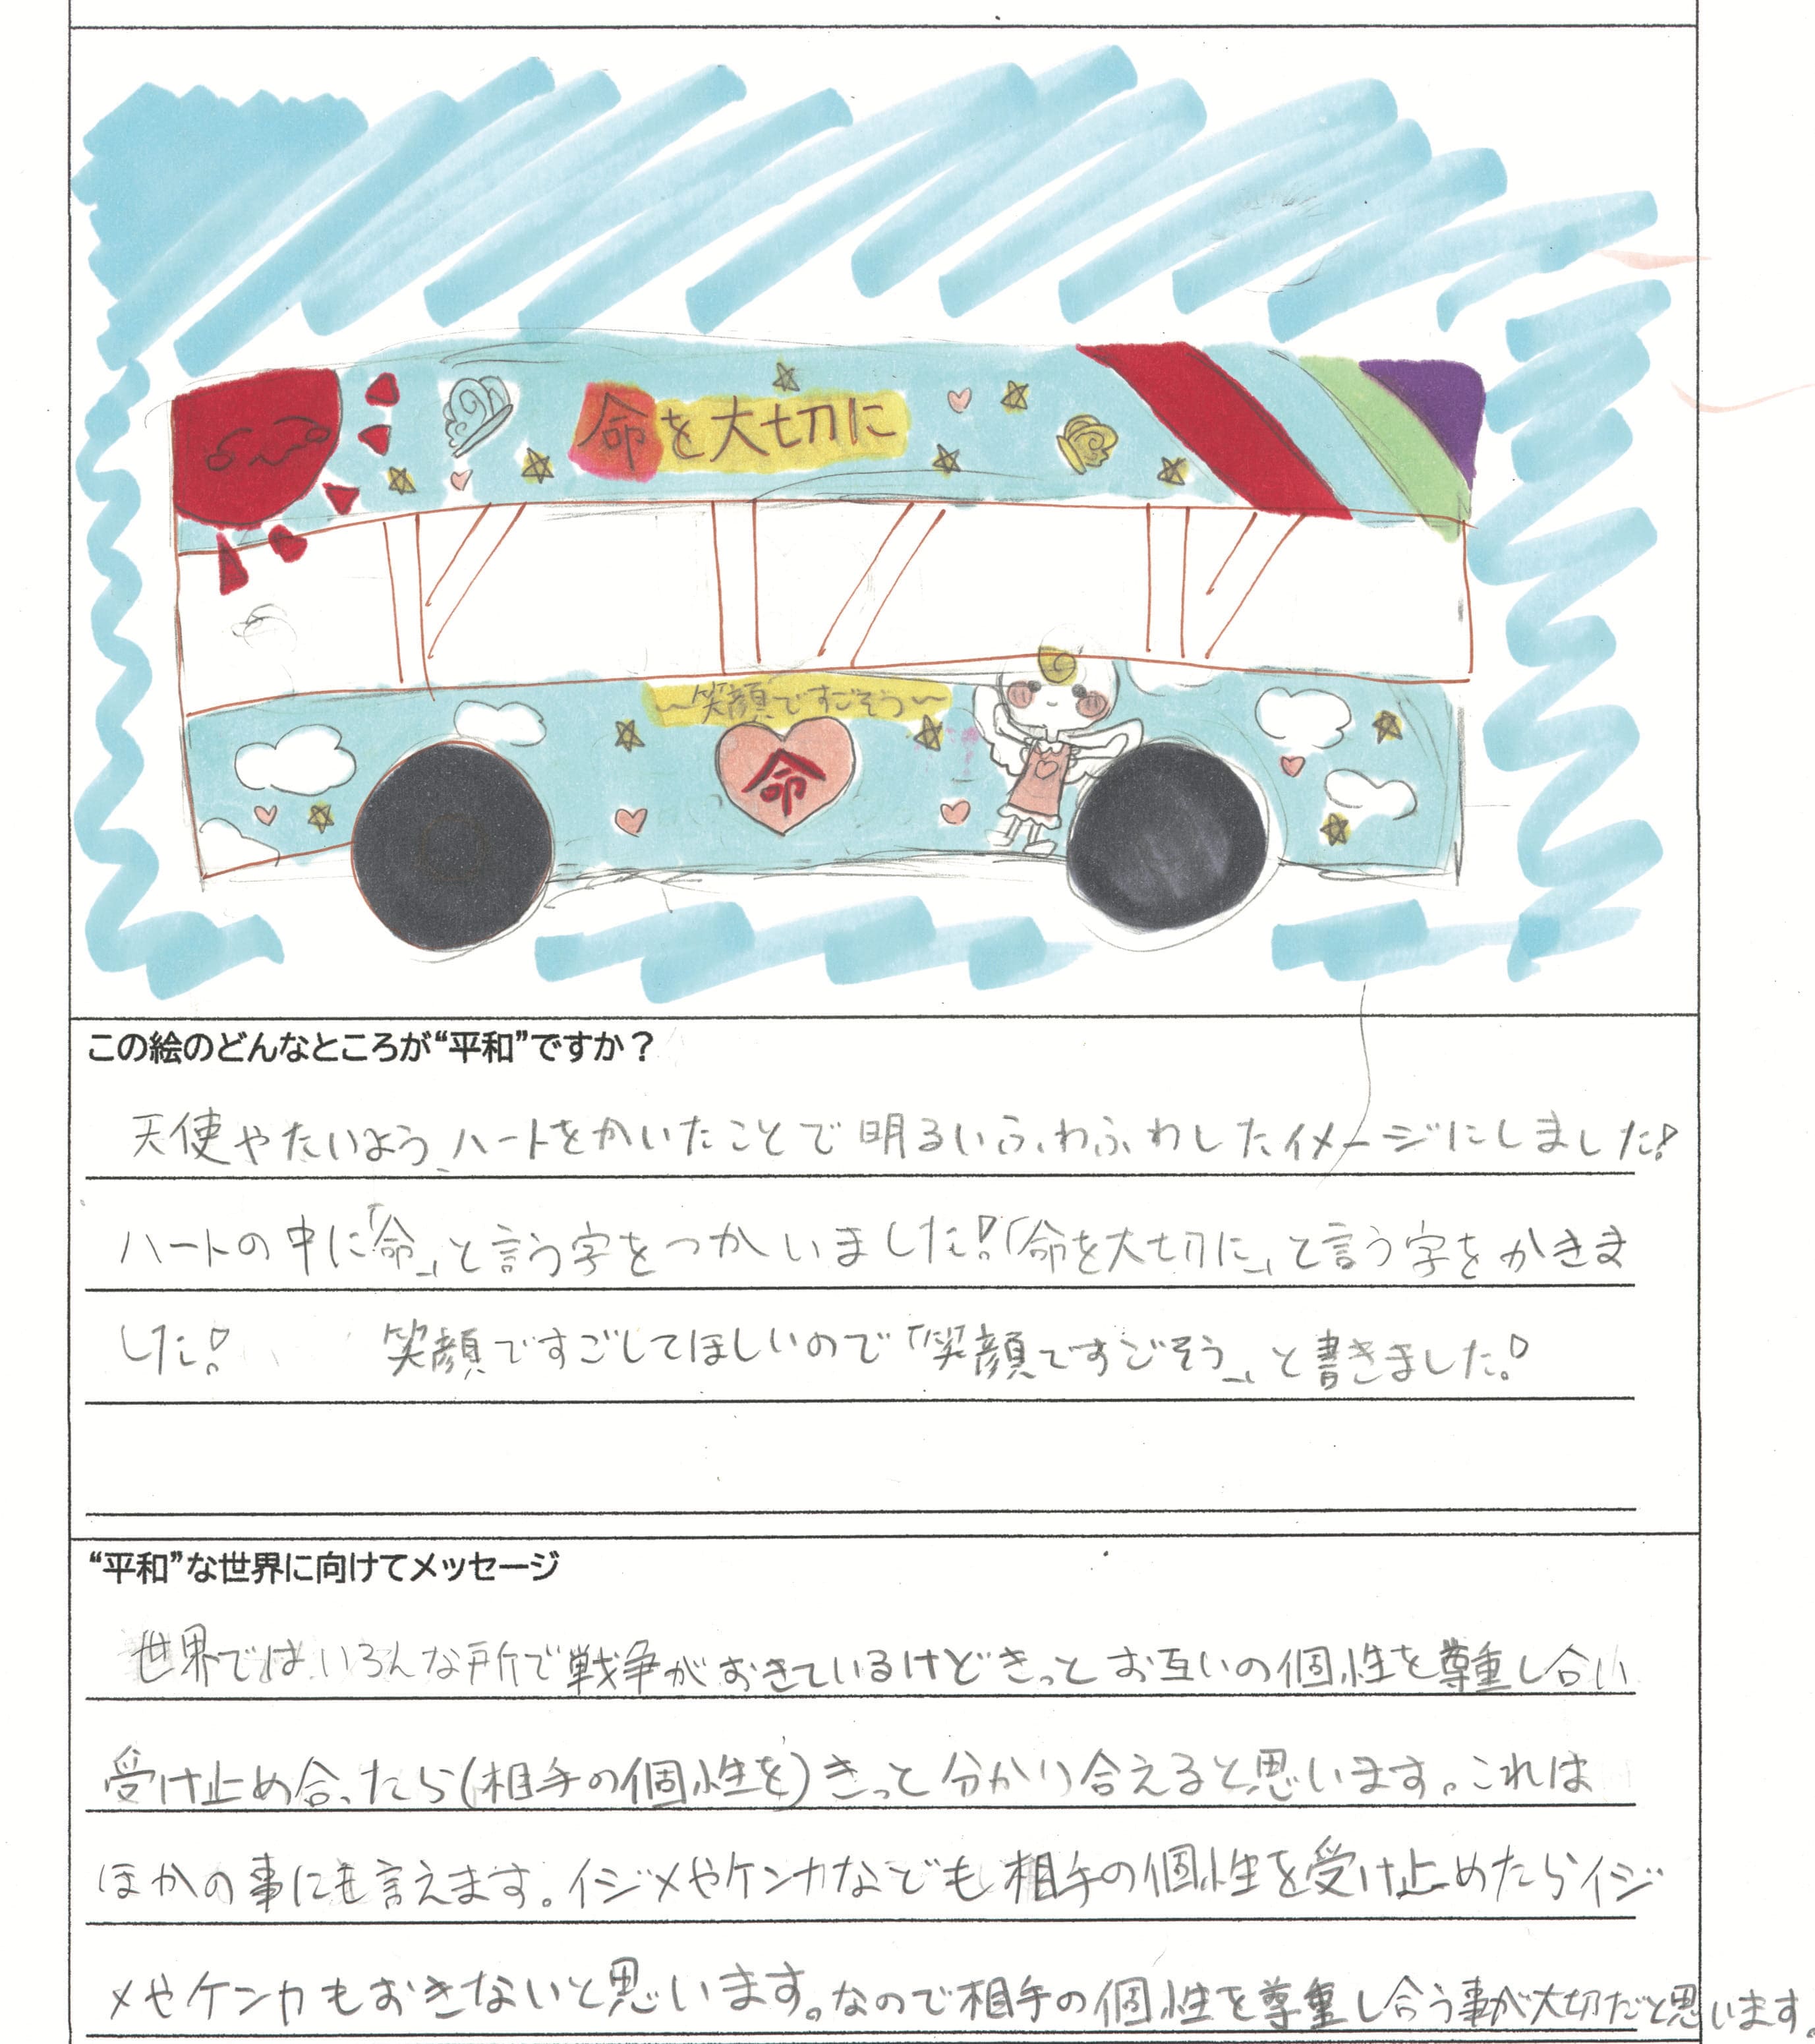 命を大切に
〜笑顔ですごそう〜
命
この絵のどんなところが“平和”ですか？
天使やたいよう、ハートをかいたことで明るいふわふわしたイメージにしました!
ハートの中に「命」と言う字をつかいました!「命を大切に」と言う字をかきま
した! 笑顔ですごしてほしいので「笑顔ですごそう」と書きました!
“平和”な世界に向けてメッセージ
世界ではいろんな所で戦争がおきているけどきっとお互いの個性を尊重し合い
受け止め合ったら(相手の個性を)きっと分かり合えると思います。これは
ほかの事にも言えます。イジメやケンカなども相手の個性を受け止めたらイジ
メやケンカもおきないと思います。なので相手の個性を尊重し合う事が大切だと思います。